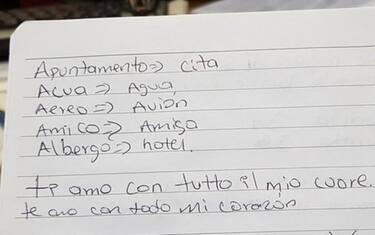 Apuntamento => cita
Acua => Agua,
Aereo => Avión
Amico => Amigo
Albergo => hotel.
te amo con tutto il mio cuore.
te amo con todo mi corazón